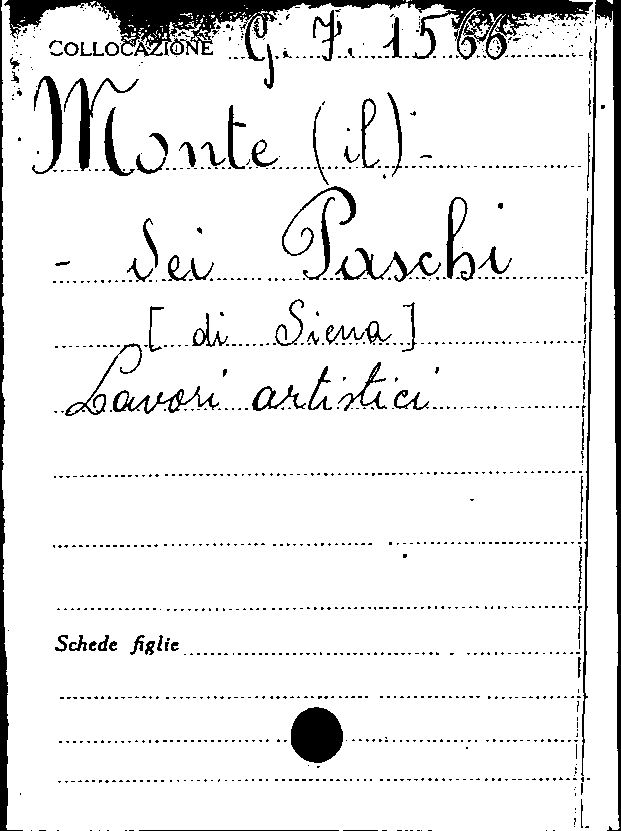 COLLOCAZIONE G. F. 1566
Monte (il) -
- dei Paschi
[di Siena]
Lavori artistici
Schede figlie